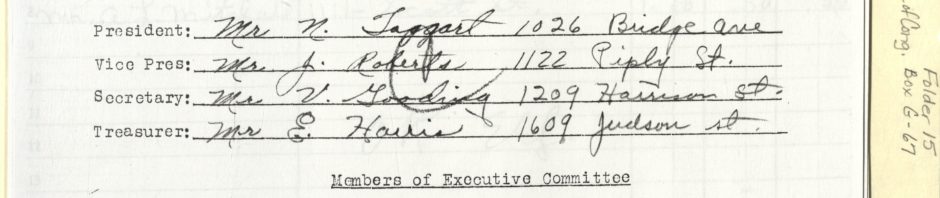 President: Mr N. Taggart 1026 Bridge Ave
Vice Pres: Mr. J. Roberts 1122 Piply St.
Secretary: Mr V. Gooding 1209 Harrison St.
Treasurer: Mr E. Harris 1609 Judson St.
Members of Executive Committee
Folder 15
of Cong. Box G-67